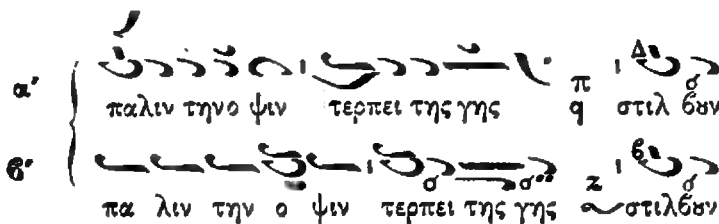 α' παλιν τηνο ψιν τερπει της γης π q στιλ ϐȣν
ϐ' πα λιν την ο ψιν τερπει της γης z στιλϐȣν